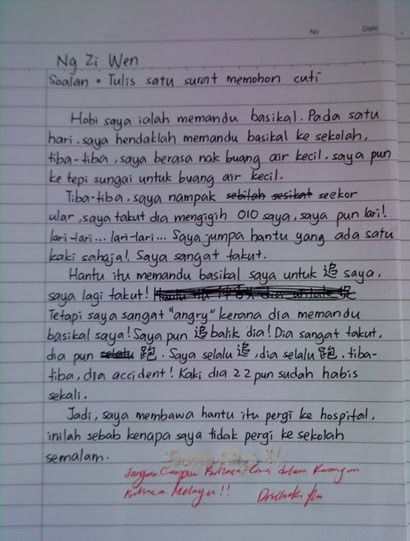 No
Date
Ng Zi Wen
Soalan : Tulis satu surat memohon cuti
Hobi saya ialah memandu basikal. Pada satu
hari, saya hendaklah memandu basikal ke sekolah,
tiba-tiba, saya berasa nak buang air kecil, saya pun
ke tepi sungai untuk buang air kecil.
Tiba-tiba, saya nampak sebilah sesikat seekor
ular, saya takut dia mengigih 010 saya, saya pun lari!
lari-lari... lari-lari... Saya jumpa hantu yang ada satu
kaki sahaja! Saya sangat takut.
Hantu itu memandu basikal saya untuk 追 saya,
saya lagi takut!
Tetapi saya sangat "angry" kerana dia memandu
basikal saya! Saya pun 追 balik dia! Dia sangat takut,
dia pun selalu 跑. Saya selalu 追, dia selalu 跑. tiba-
tiba, dia accident! Kaki dia 22 pun sudah habis
sekali.
Jadi, saya membawa hantu itu pergi ke hospital,
inilah sebab kenapa saya tidak pergi ke sekolah
semalam.
Jangan Campur Bahasa Cina dalam Karangan
Bahasa Melayu!!